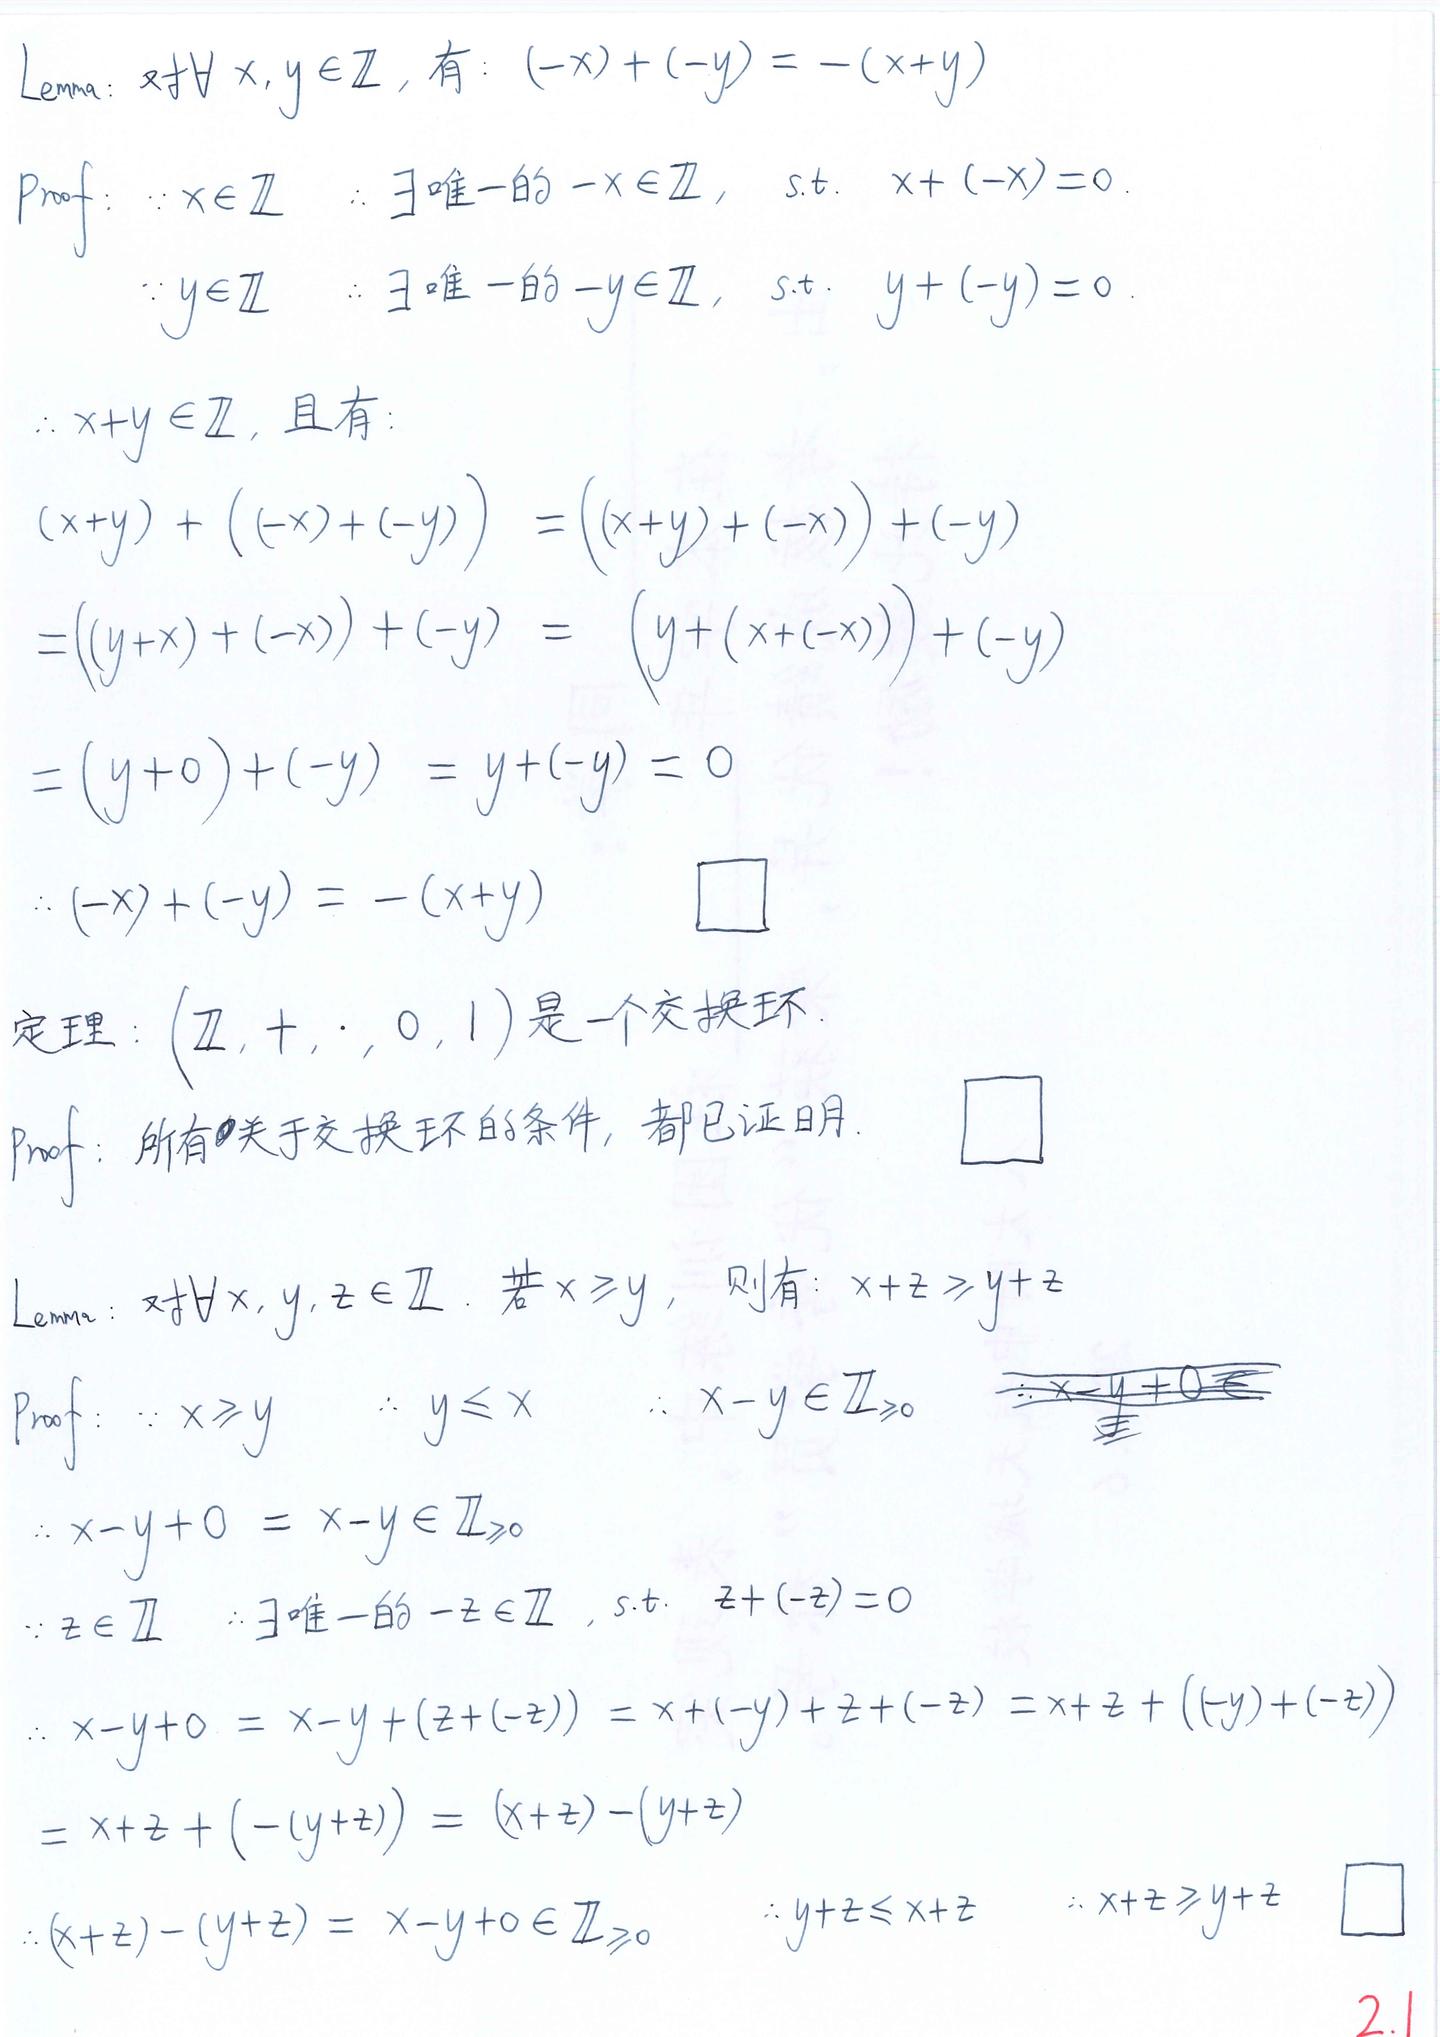 Lemma: 对∀ x, y ∈ ℤ, 有: (-x) + (-y) = -(x+y)
Proof: ∵ x∈ℤ ∴ ∃唯一的 -x∈ℤ, s.t. x+(-x)=0.
∵ y∈ℤ ∴ ∃唯一的 -y∈ℤ, s.t. y+(-y)=0.
∴ x+y∈ℤ, 且有:
(x+y) + ((-x)+(-y)) = ((x+y)+(-x))+(-y)
= ((y+x)+(-x))+(-y) = (y+(x+(-x)))+(-y)
= (y+0)+(-y) = y+(-y) = 0
∴ (-x)+(-y) = -(x+y) □
定理: (ℤ, +, ·, 0, 1) 是一个交换环.
Proof: 所有关于交换环的条件, 都已证明. □
Lemma: 对∀x, y, z∈ℤ. 若x⩾y, 则有: x+z⩾y+z
Proof: ∵ x⩾y ∴ y⩽x ∴ x-y∈ℤ⩾0 ∴ x-y+0∈
∴ x-y+0 = x-y∈ℤ⩾0
∵ z∈ℤ ∴ ∃唯一的 -z∈ℤ, s.t. z+(-z)=0
∴ x-y+0 = x-y+(z+(-z)) = x+(-y)+z+(-z) = x+z+((-y)+(-z))
= x+z+(-(y+z)) = (x+z)-(y+z)
∴ (x+z)-(y+z) = x-y+0∈ℤ⩾0 ∴ y+z⩽x+z ∴ x+z⩾y+z □
2.1